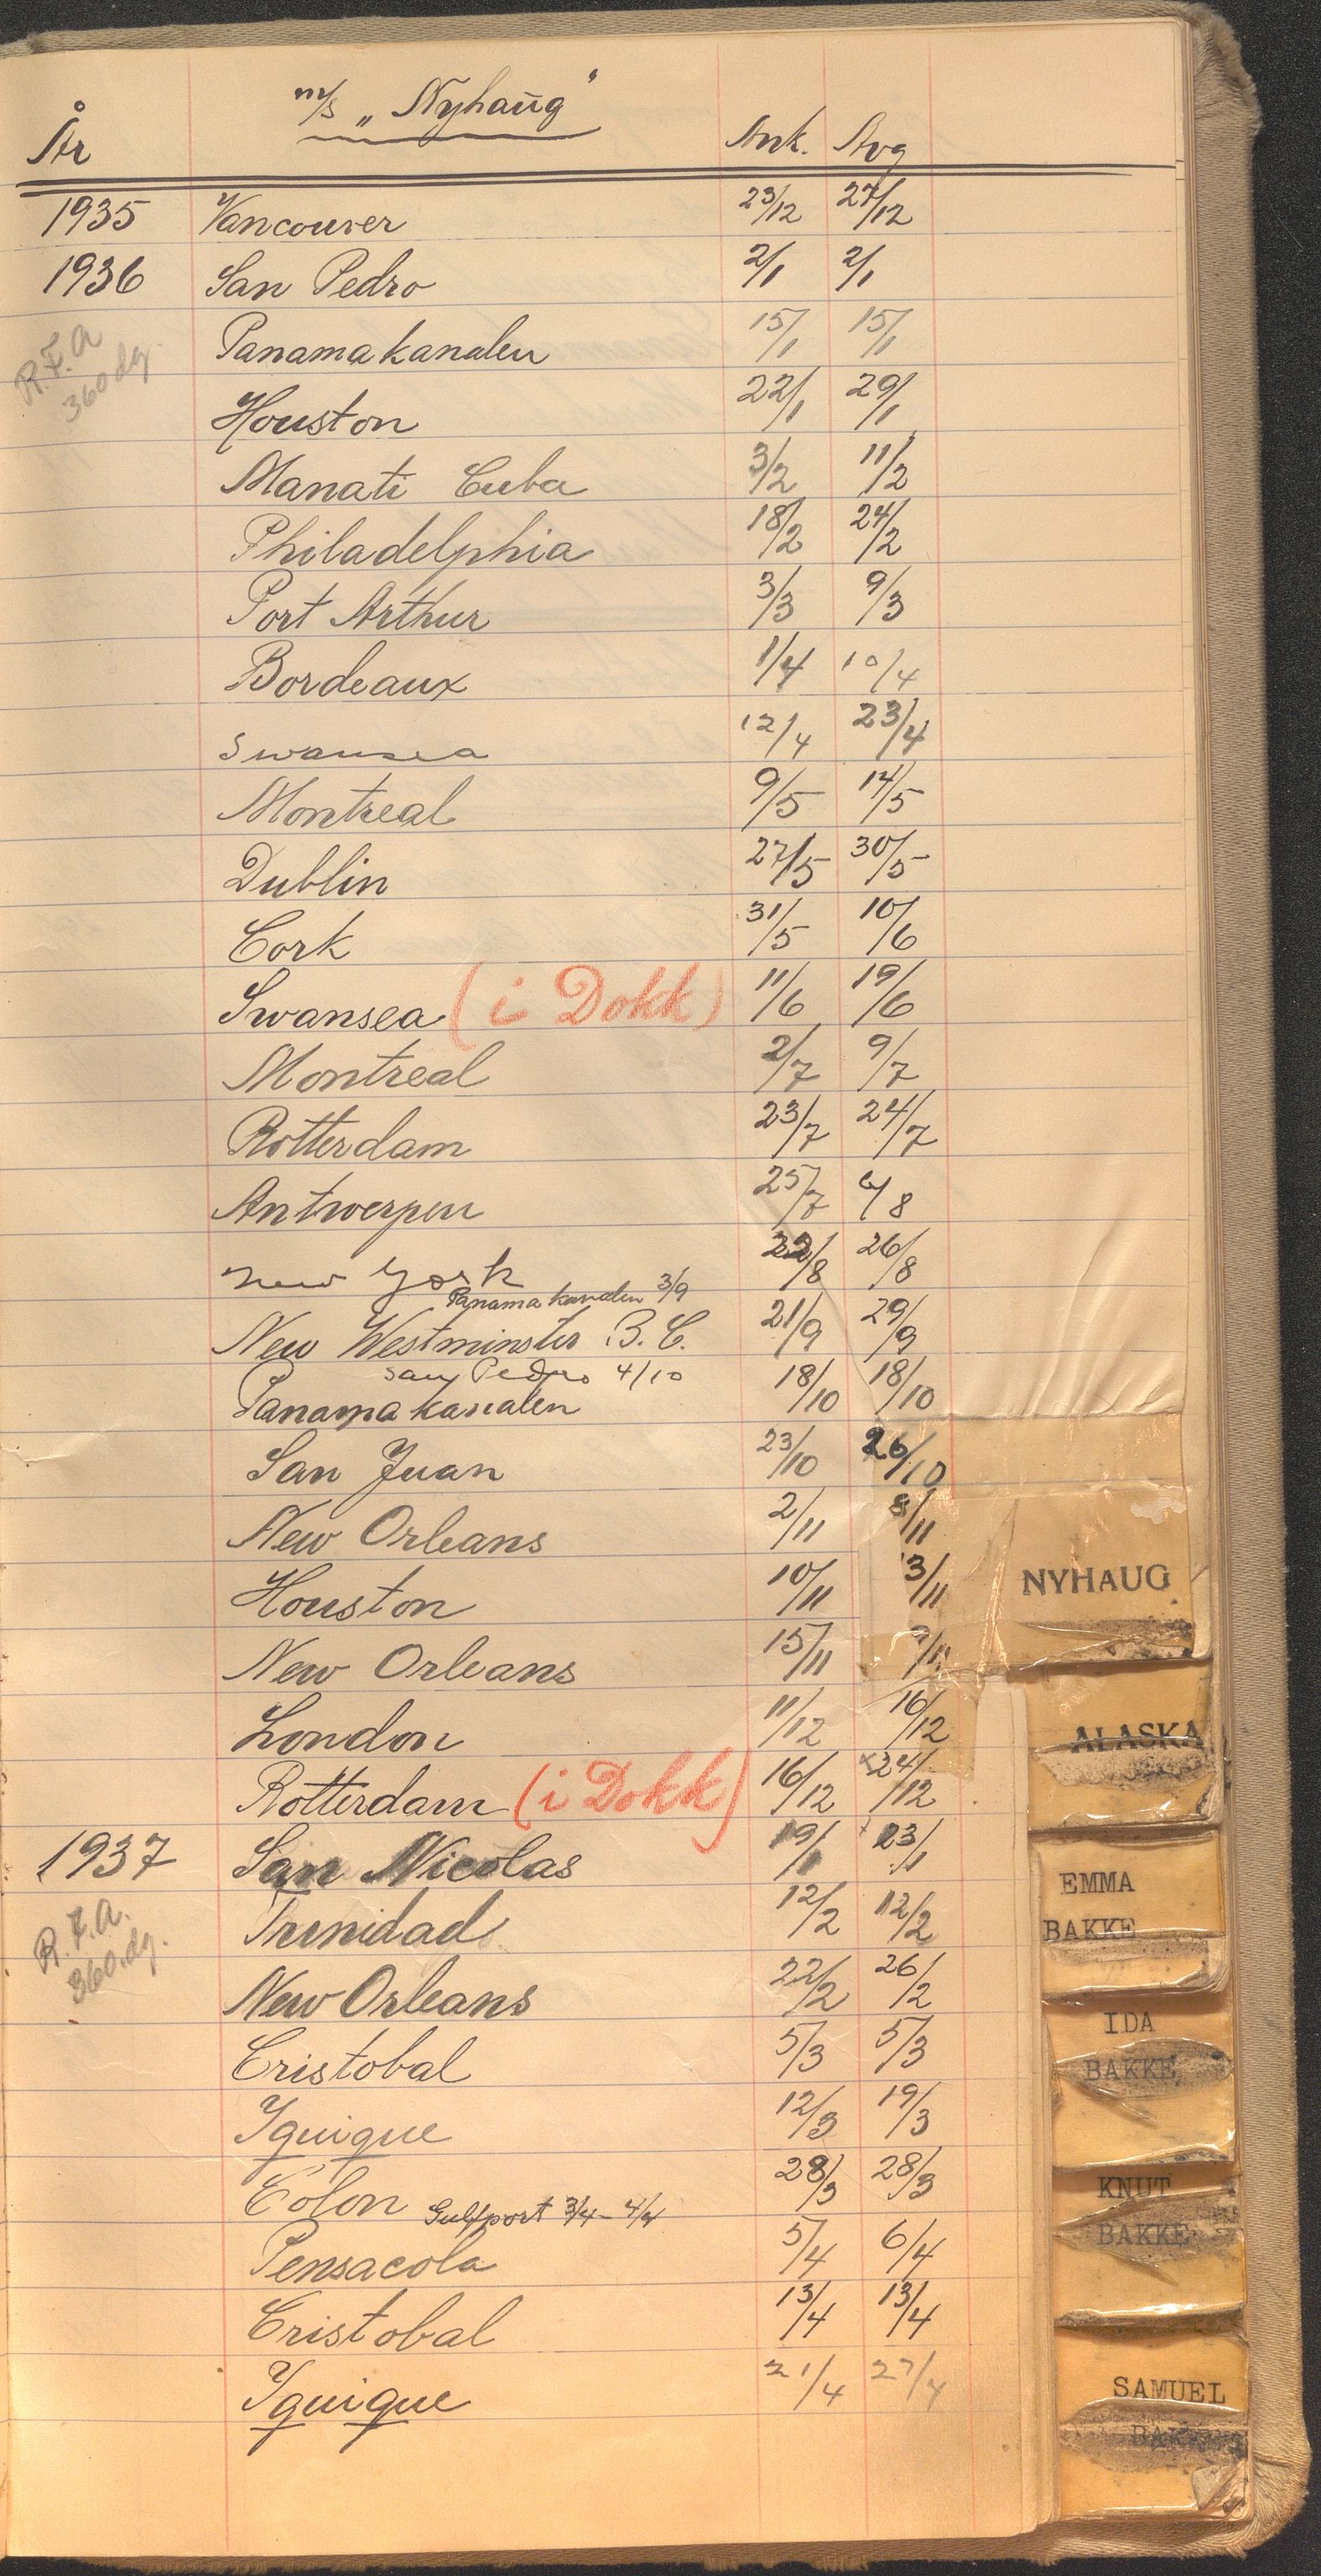 m/s „Nyhaug"
År Ank. Avg
1935 Vancouver 23/12 27/12
1936 San Pedro 2/1 2/1
R.F.A Panamakanalen 15/1 15/1
360 dg. Houston 22/1 29/1
Manati Cuba 3/2 11/2
Philadelphia 18/2 24/2
Port Arthur 3/3 9/3
Bordeaux 1/4 10/4
Swansea 12/4 23/4
Montreal 9/5 14/5
Dublin 27/5 30/5
Cork 31/5 10/6
Swansea (i Dokk) 11/6 19/6
Montreal 2/7 9/7
Rotterdam 23/7 24/7
Antwerpen 25/7 /8
New York 22/8 26/8
Panamakanalen 3/9
New Westminster B.C. 21/9 29/9
San Pedro 4/10
Panamakanalen 18/10 18/10
San Juan 23/10 26/10
New Orleans 2/11 8/11
Houston 10/11 13/11
New Orleans 15/11 /11
London 11/12 16/12
Rotterdam (i Dokk) 16/12 24/12
1937 San Nicolas 19/1 23/1
R.F.A. Trinidad 12/2 12/2
360.dg. New Orleans 22/2 26/2
Cristobal 5/3 5/3
Iquique 12/3 19/3
Colon 28/3 28/3
Gulfport 3/4 - 4/4
Pensacola 5/4 6/4
Cristobal 13/4 13/4
Iquique 21/4 27/4
NYHAUG
ALASKA
EMMA
BAKKE
IDA
BAKKE
KNUT
BAKKE
SAMUEL
BAKKE